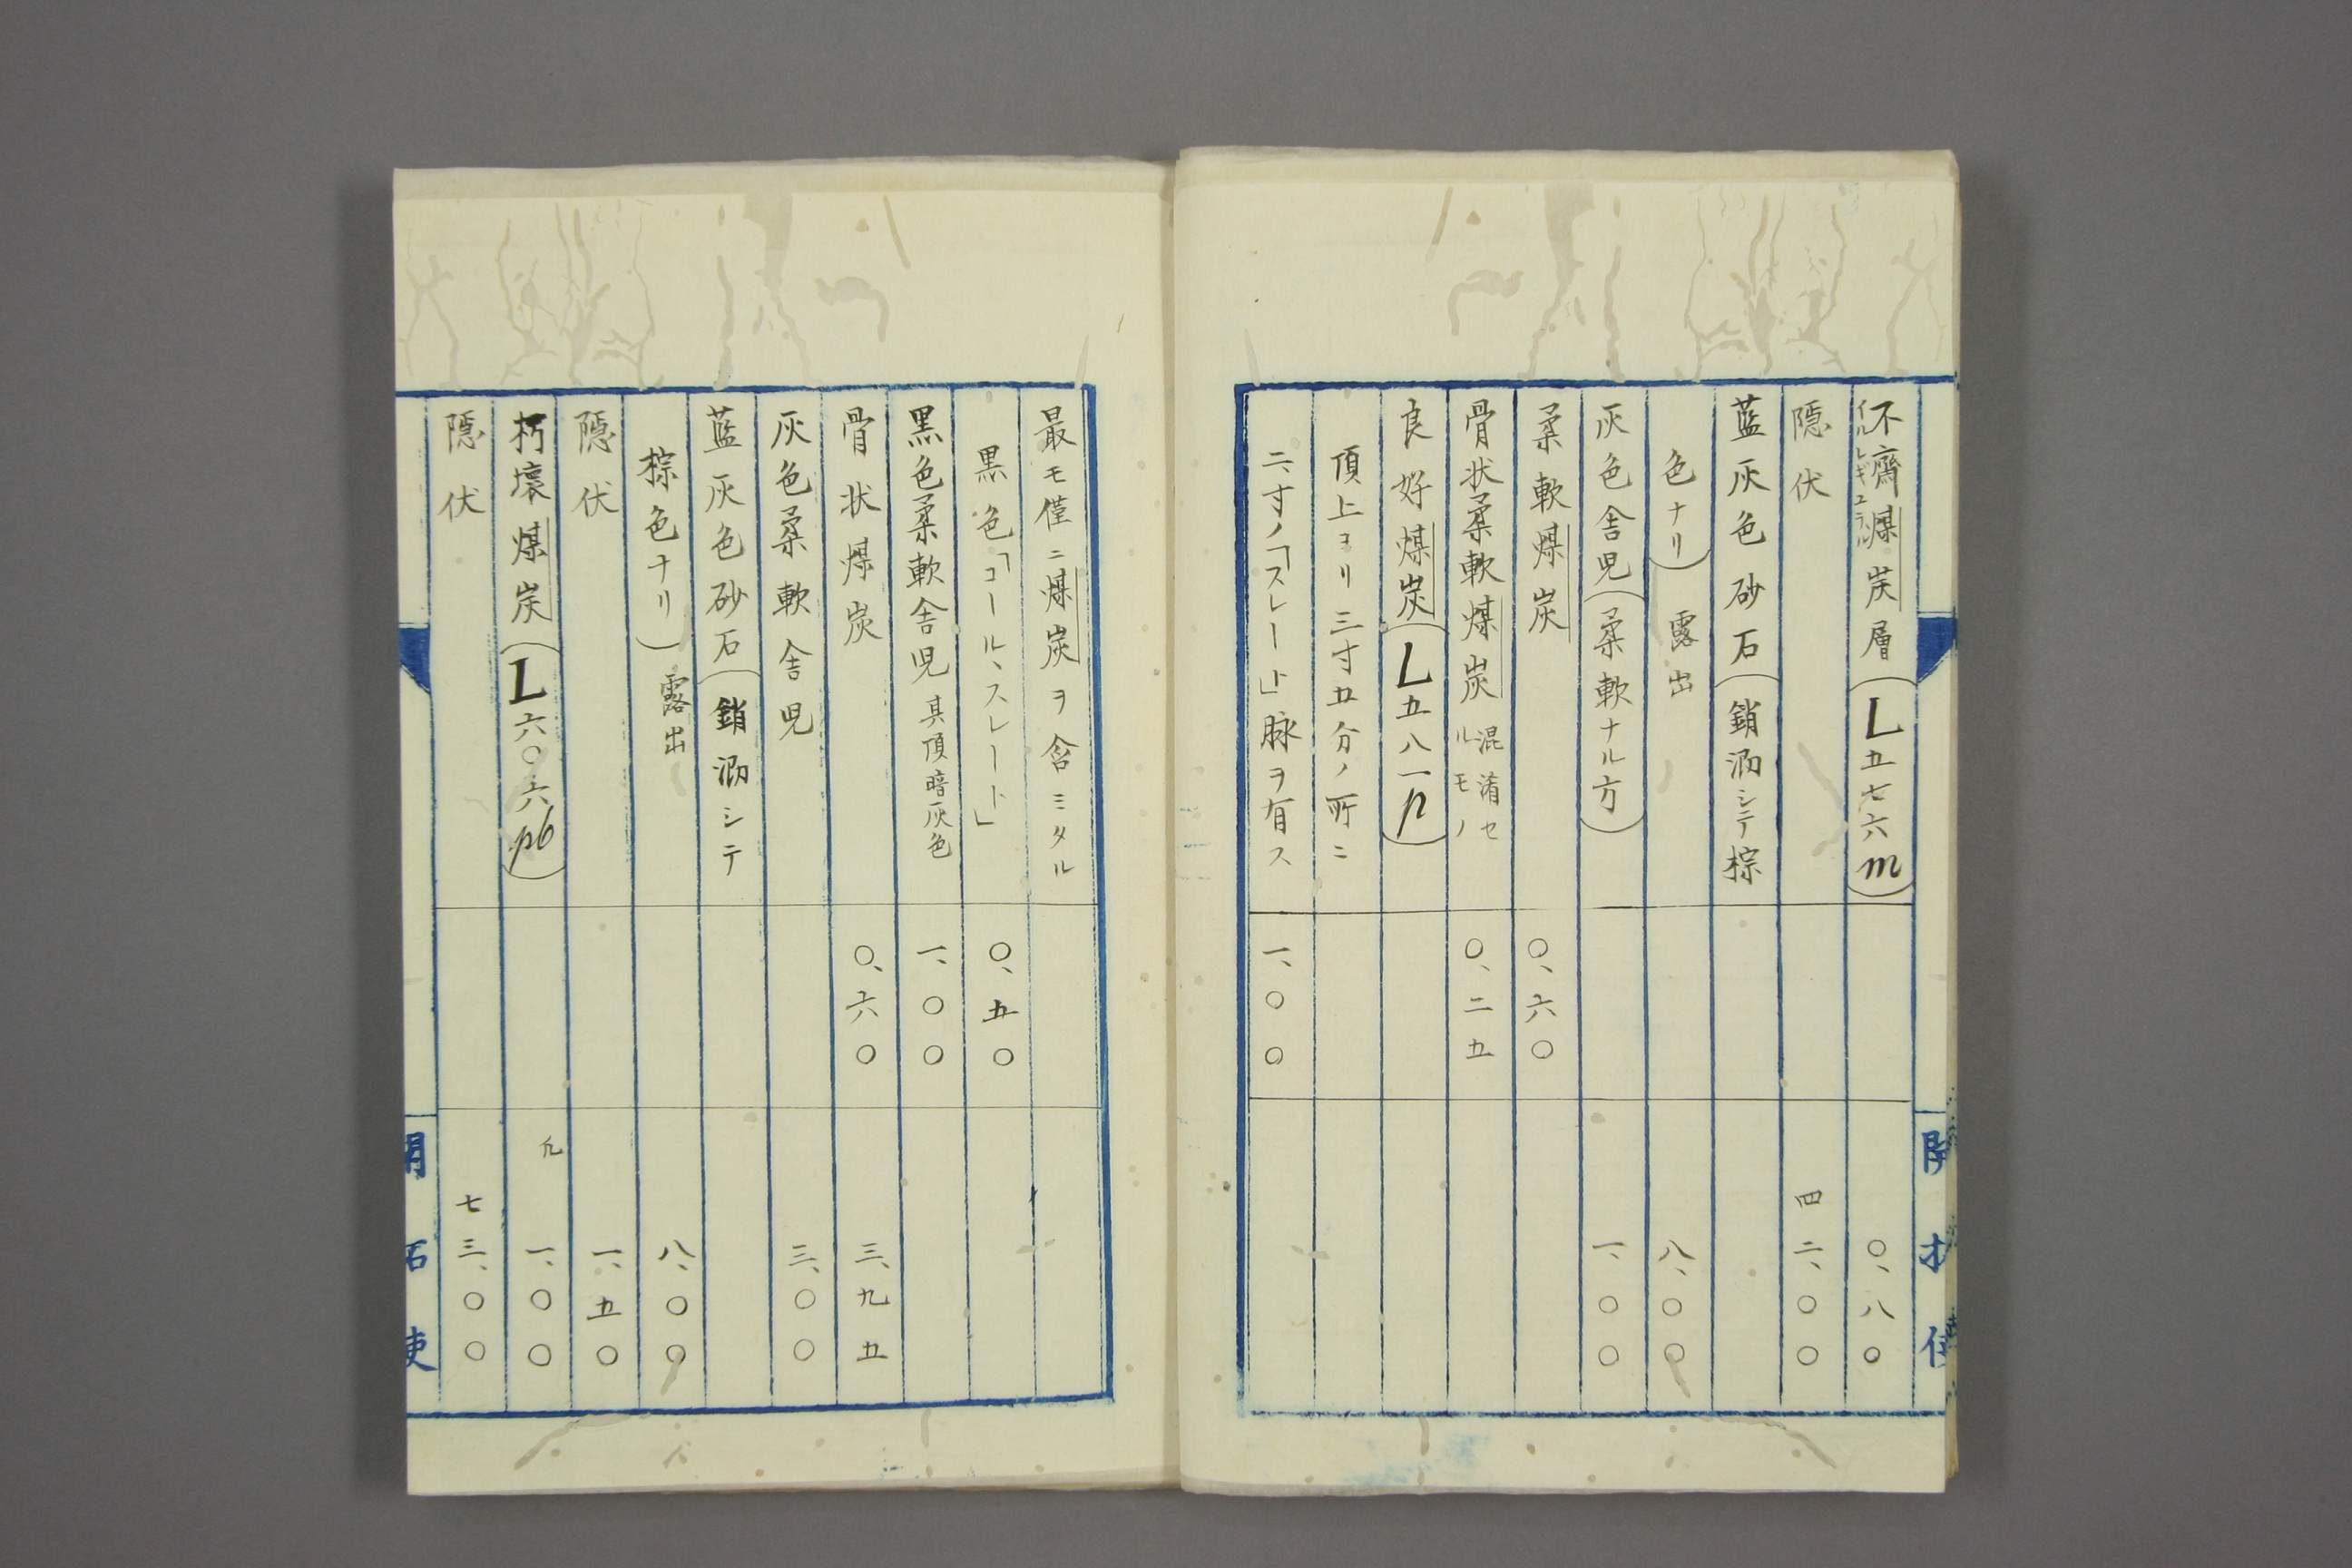 不齊煤炭層(L五七六m) 〇、八〇
イルレギユラル
隠伏 四二、〇〇
藍灰色砂石(銷泐シテ棕
色ナリ) 露出 八、〇〇
灰色舎児(柔軟ナル方) 一、〇〇
柔軟煤炭 〇、六〇
骨状柔軟煤炭 混淆セルモノ 〇、二五
良好煤炭(L五八一n)
頂上ヨリ三寸五分ノ所ニ
二、寸ノ「スレート」脉ヲ有ス 一、〇〇
開拓使
最モ僅ニ煤炭ヲ含ミタル
黒色「コール、スレート」 〇、五〇
黒色柔軟舎児 其頂暗灰色 一、〇〇
骨状煤炭 〇、六〇 三、九五
灰色柔軟舎児 三、〇〇
藍灰色砂石(銷泐シテ
棕色ナリ) 露出 八、〇〇
隠伏 一、五〇
朽壊煤炭(L六〇六pb) 凡 一、〇〇
隠伏 七三、〇〇
開拓使